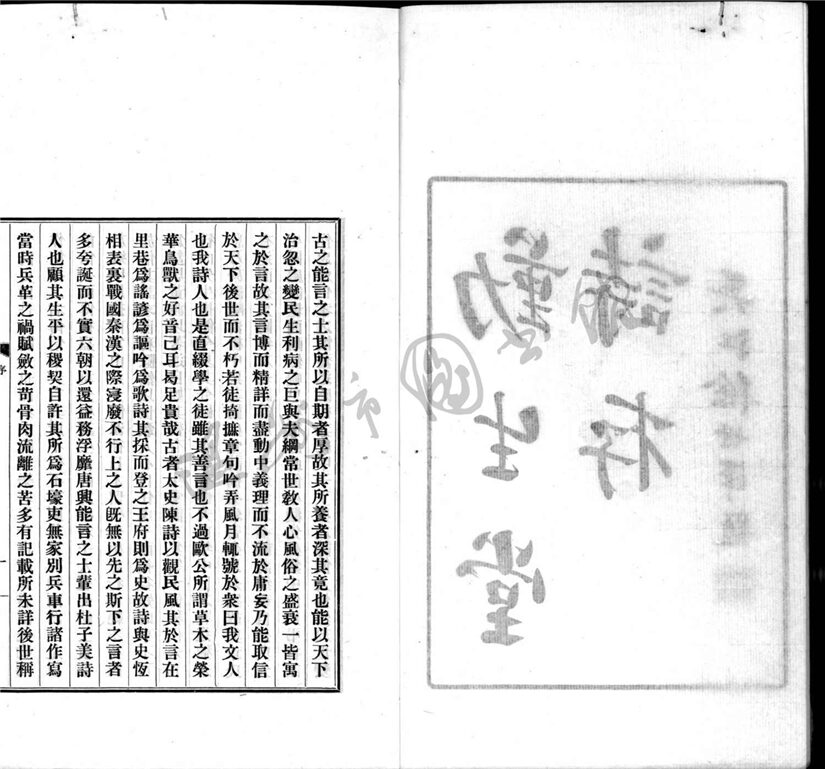 古之能言之士其所以自期者厚故其所養者深其竟也能以天下
治忽之變民生利病之巨與夫綱常世敎人心風俗之盛衰一皆寓
之於言故其言博而精詳而盡動中義理而不流於庸妄乃能取信
於天下後世而不朽若徒掎摭章句吟弄風月輒號於衆曰我文人
也我詩人也是直綴學之徒雖其善言也不過歐公所謂草木之榮
華鳥獸之好音已耳曷足貴哉古者太史陳詩以觀民風其於言在
里巷爲謠諺爲謳吟爲歌詩其採而登之王府則爲史故詩與史恆
相表裏戰國秦漢之際寖廢不行上之人旣無以先之斯下之言者
多夸誕而不實六朝以還益務浮靡唐興能言之士輩出杜子美詩
人也顧其生平以稷契自許其所爲石壕吏無家別兵車行諸作寫
當時兵革之禍賦斂之苛骨肉流離之苦多有記載所未詳後世稱
序
一